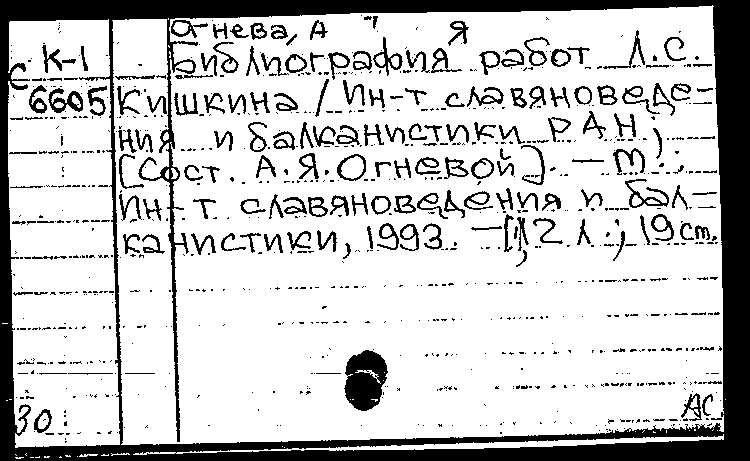 Огнева, А Я
К-1 Библиография работ Л.С.
С
6605 Кишкина / Ин-т славяноведе-
ния и балканистики РАН;
[Сост. А.Я.Огневой]. — М.:
Ин-т славяноведения и бал-
канистики, 1993. — 12 л.; 19 cm.
30
АС